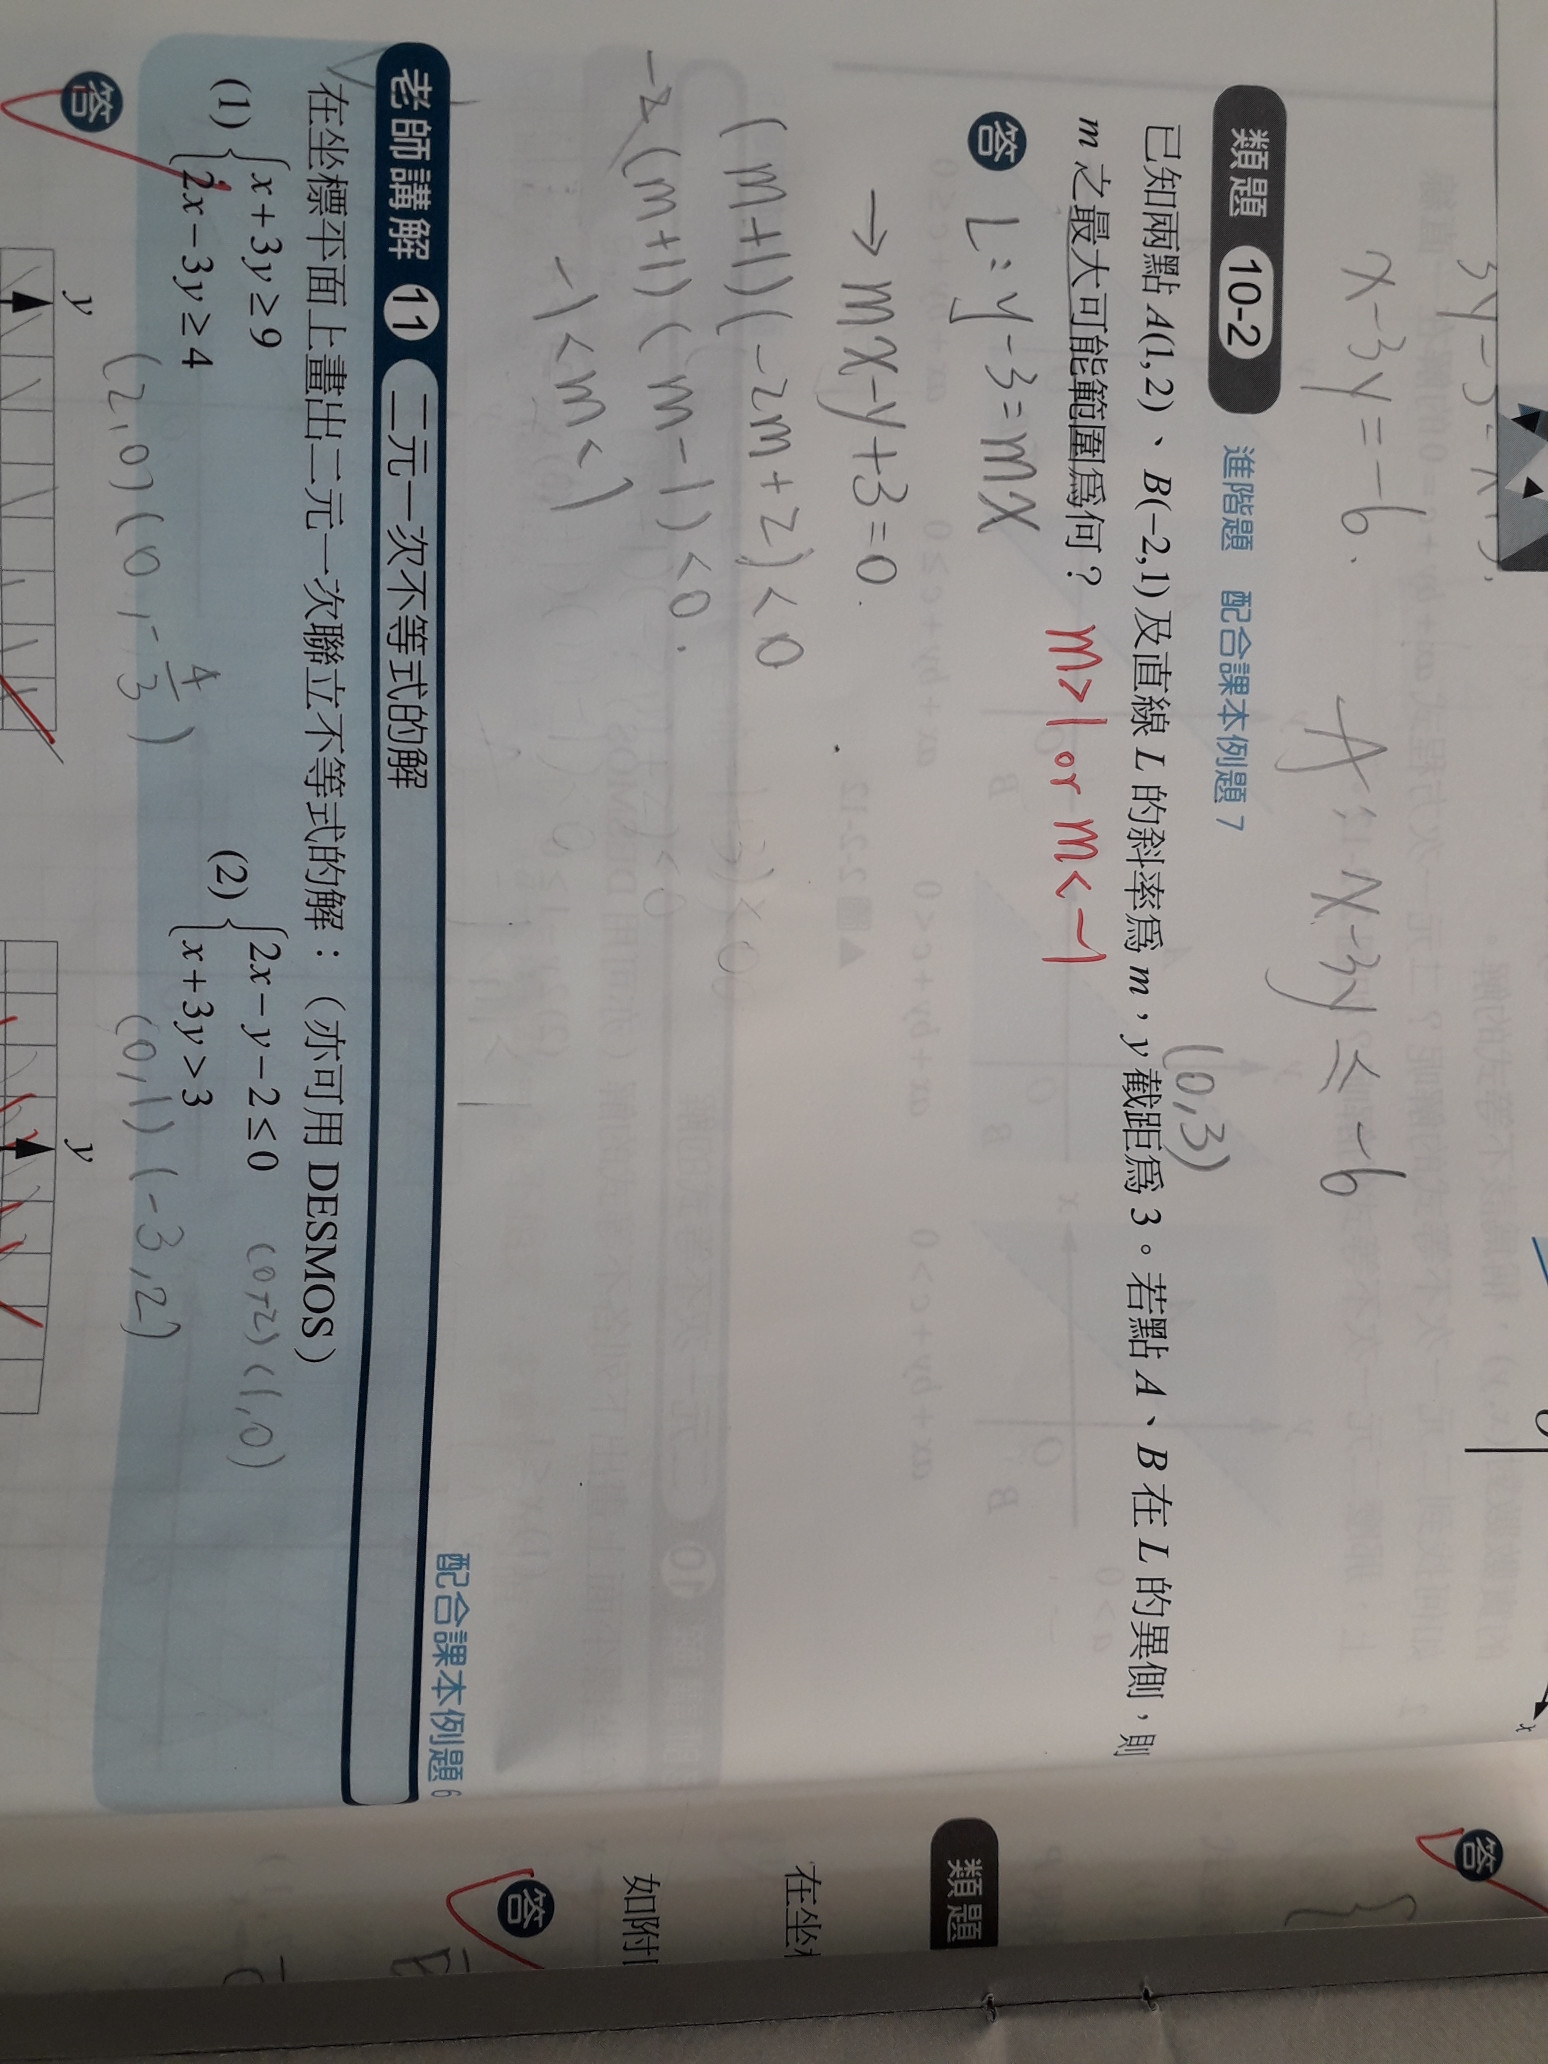 x-3y=-6.
A:x-3y≤-6
類題 10-2 進階題 配合課本例題 7
(0,3)
已知兩點 A(1,2)、B(-2,1) 及直線 L 的斜率為 m，y 截距為 3。若點 A、B 在 L 的異側，則
m 之最大可能範圍為何？ m>1 or m<-1
答 L:y-3=mx
→mx-y+3=0.
(m+1)(-2m+2)<0
-2(m+1)(m-1)<0.
-1<m<1
配合課本例題 6
老師講解 11 二元一次不等式的解
在坐標平面上畫出二元一次聯立不等式的解：（亦可用 DESMOS）
(1) { x+3y≥9
2x-3y≥4
(2) { 2x-y-2≤0 (0,-2)(1,0)
x+3y>3
(2,0)(0,-4/3)
(0,1)(-3,2)
答
y
y
x
答
類題
在坐
如附
答